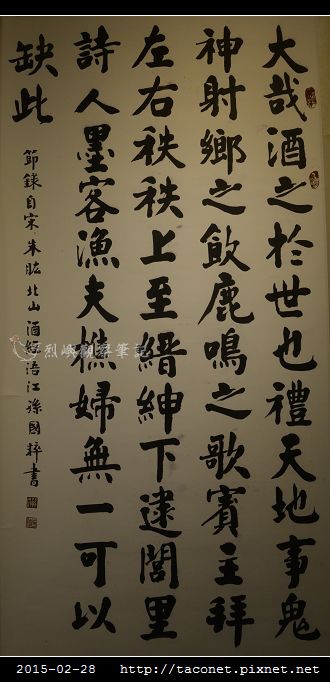 大哉酒之於世也禮天地事鬼
神射鄉之飲鹿鳴之歌賓主拜
左右秩秩上至縉紳下逮閭里
詩人墨客漁夫樵婦無一可以
缺此
節錄自宋朱肱北山酒經浯江孫國粹書
烈嶼觀察筆記
2015-02-28 http://taconet.pixnet.net